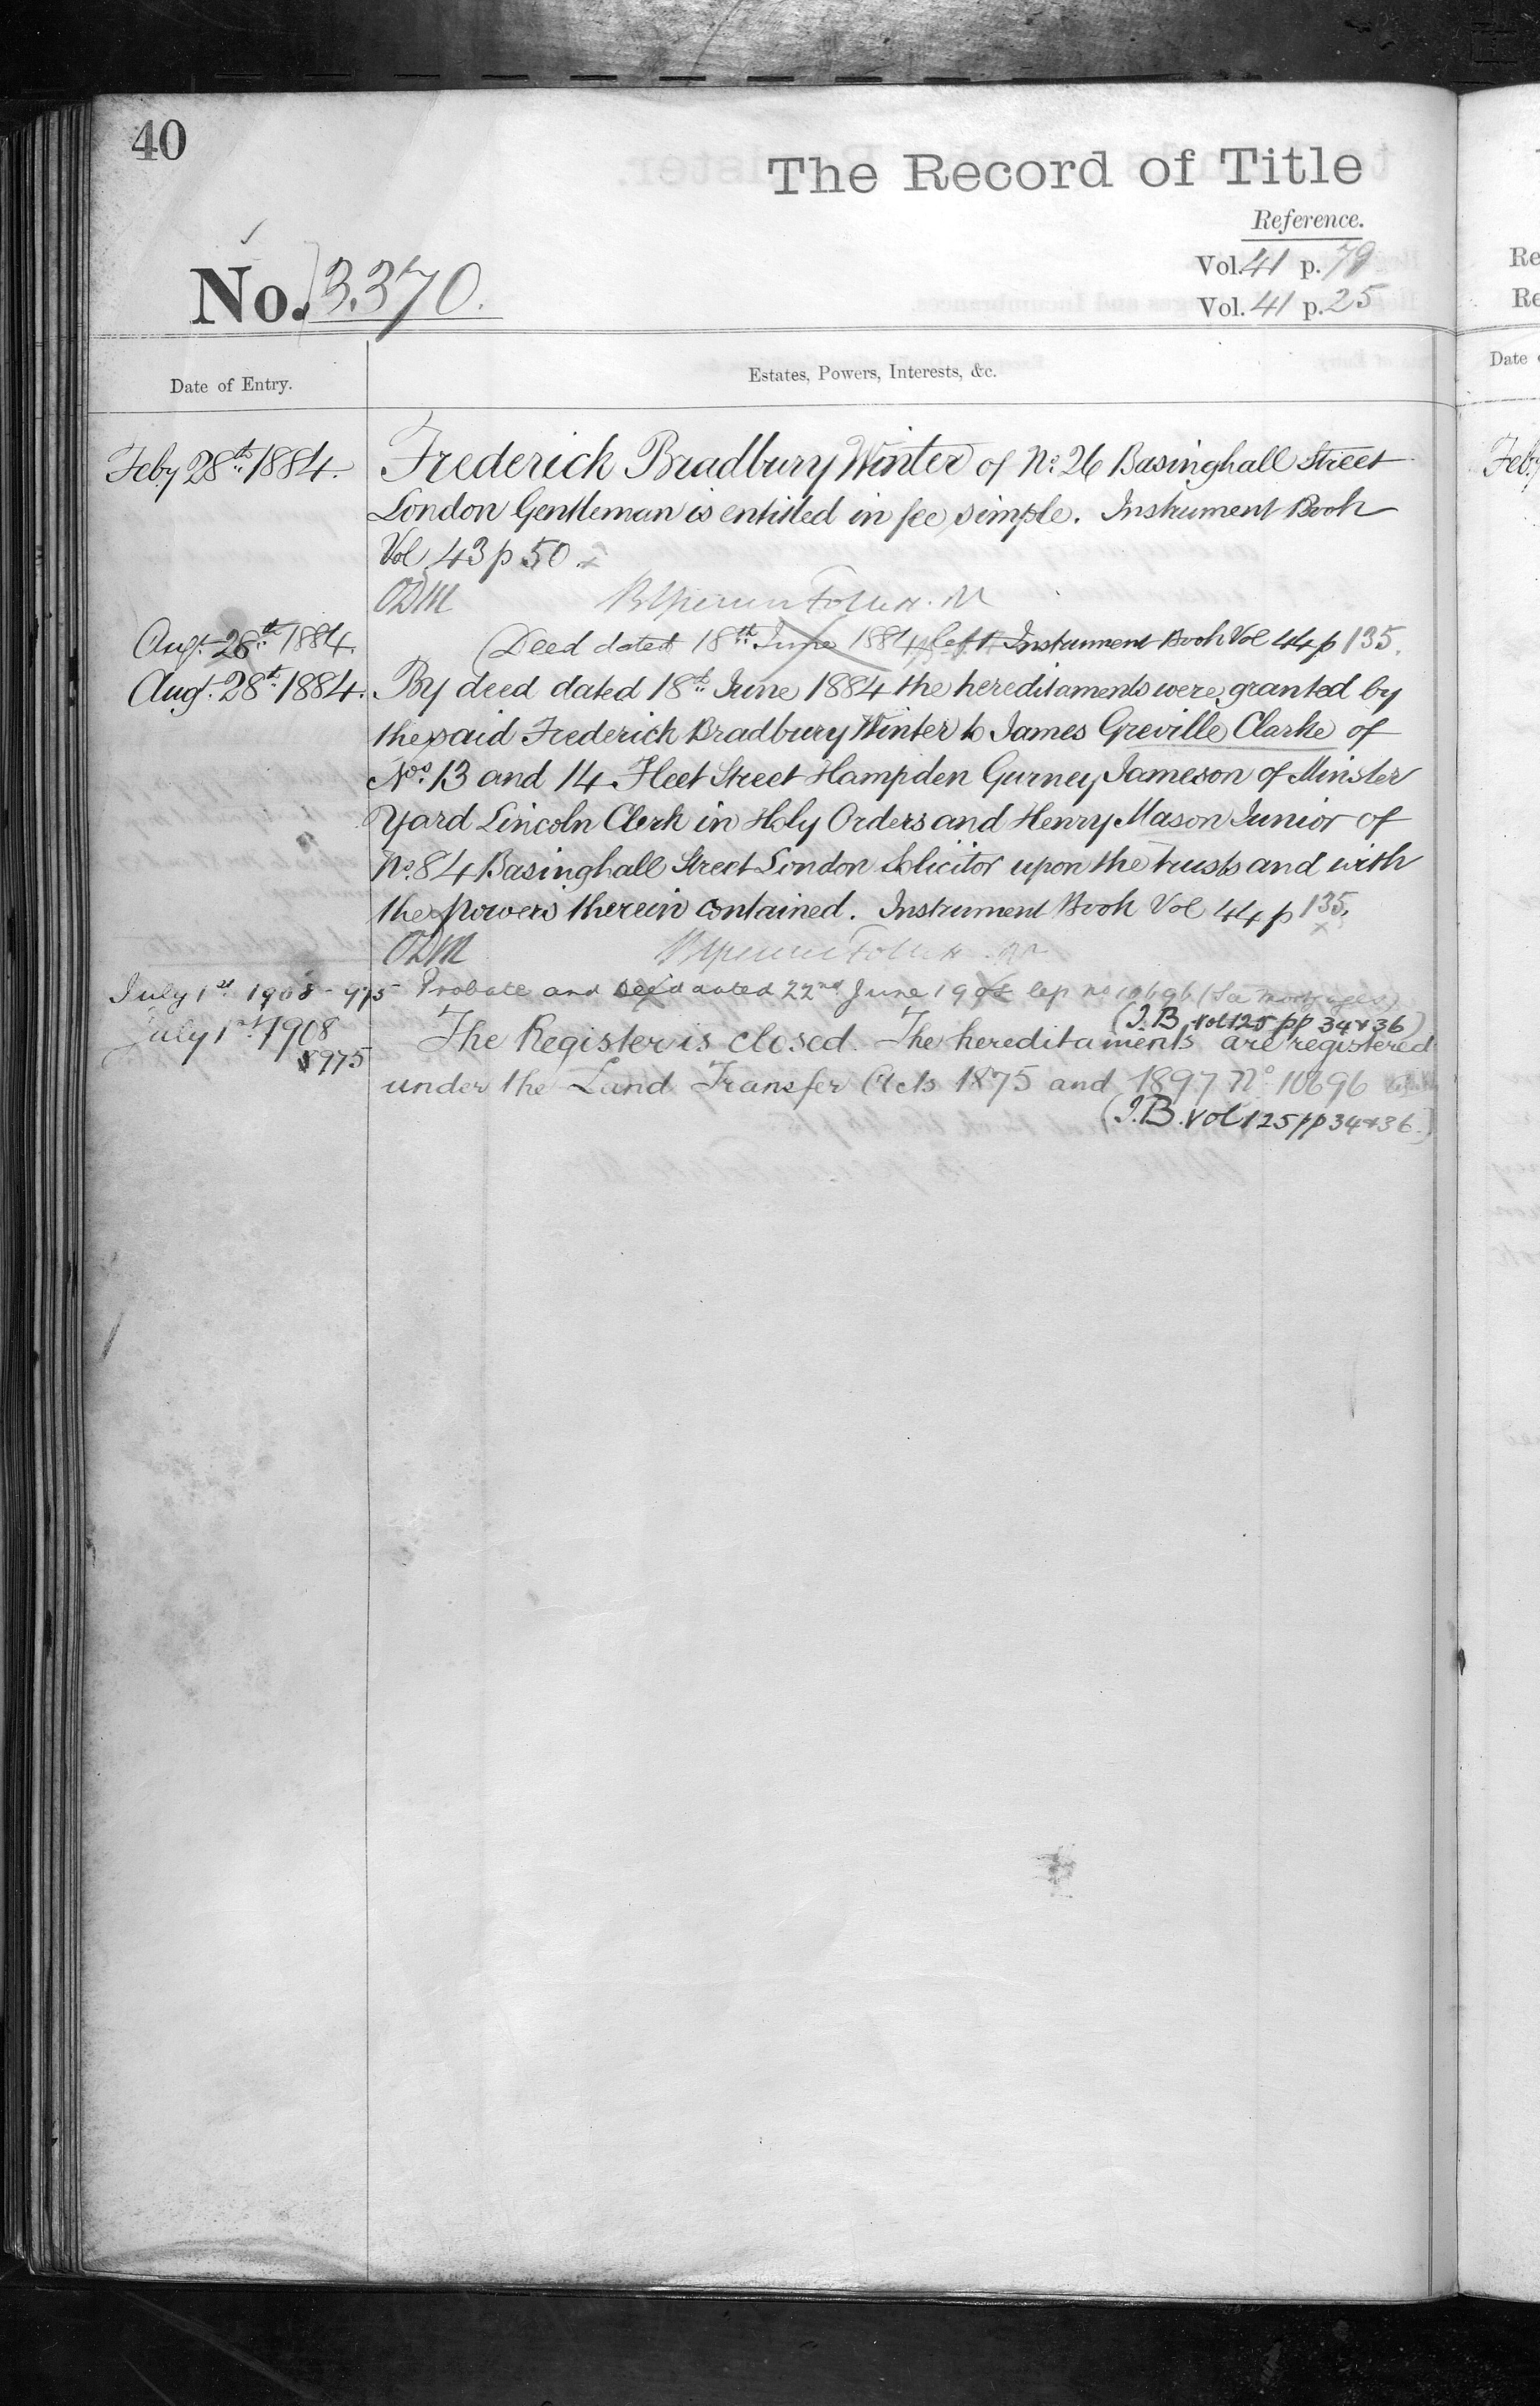 40
The Record of Title
Reference.
Vol. 41 p. 79
Vol. 41 p. 25
No. 3.370.
Date of Entry.
Estates, Powers, Interests, &c.
Feby 28th 1884. Frederick Bradbury Winter of No. 26 Basinghall Street
London Gentleman is entitled in fee simple. Instrument Book
Vol 43 p 50.
ODM
Augt. 28th 1884. (Deed dated 18th June 1884 left Instrument Book Vol 44 p 135.
Augt. 28th 1884. By deed dated 18th June 1884 the hereditaments were granted by
the said Frederick Bradbury Winter to James Greville Clarke of
Nos. 13 and 14 Fleet Street Hampden Gurney Jameson of Minster
Yard Lincoln Clerk in Holy Orders and Henry Mason Junior of
No. 84 Basinghall Street London Solicitor upon the trusts and with
the powers therein contained. Instrument Book Vol 44 p 135.
ODM
July 1st 1908 - 975 Probate and Deed dated 22nd June 1908 no 10696 (See mortgages)
(I.B. vol 125 pp 34 & 36)
July 1st 1908 The Register is closed. The hereditaments are registered
8975
under the Land Transfer Acts 1875 and 1897 No 10696
(I.B. vol 125 pp 34 & 36.)
Re
Re
Date
Feby